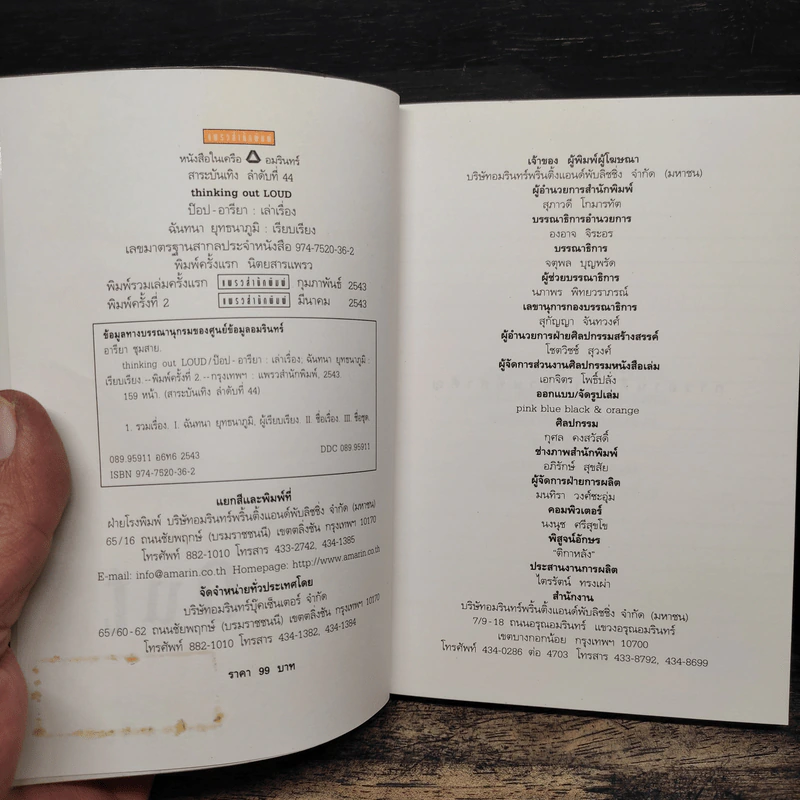 แพรวสำนักพิมพ์
หนังสือในเครือ อมรินทร์
สาระบันเทิง ลำดับที่ 44
thinking out LOUD
ป๊อป-อารียา : เล่าเรื่อง
ฉันทนา ยุทธนาภูมิ : เรียบเรียง
เลขมาตรฐานสากลประจำหนังสือ 974-7520-36-2
พิมพ์ครั้งแรก นิตยสารแพรว
พิมพ์รวมเล่มครั้งแรก แพรวสำนักพิมพ์ กุมภาพันธ์ 2543
พิมพ์ครั้งที่ 2 แพรวสำนักพิมพ์ มีนาคม 2543
ข้อมูลทางบรรณานุกรมของศูนย์ข้อมูลอมรินทร์
อารียา ชุมสาย.
thinking out LOUD/ป๊อป-อารียา : เล่าเรื่อง; ฉันทนา ยุทธนาภูมิ :
เรียบเรียง.--พิมพ์ครั้งที่ 2.--กรุงเทพฯ : แพรวสำนักพิมพ์, 2543.
159 หน้า. (สาระบันเทิง ลำดับที่ 44)
1. รวมเรื่อง. I. ฉันทนา ยุทธนาภูมิ, ผู้เรียบเรียง. II. ชื่อเรื่อง. III. ชื่อชุด.
089.95911 อ6ท6 2543 DDC 089.95911
ISBN 974-7520-36-2
แยกสีและพิมพ์ที่
ฝ่ายโรงพิมพ์ บริษัทอมรินทร์พริ้นติ้งแอนด์พับลิชชิ่ง จำกัด (มหาชน)
65/16 ถนนชัยพฤกษ์ (บรมราชชนนี) เขตตลิ่งชัน กรุงเทพฯ 10170
โทรศัพท์ 882-1010 โทรสาร 433-2742, 434-1385
E-mail: info@amarin.co.th Homepage: http://www.amarin.co.th
จัดจำหน่ายทั่วประเทศโดย
บริษัทอมรินทร์บุ๊คเซ็นเตอร์ จำกัด
65/60-62 ถนนชัยพฤกษ์ (บรมราชชนนี) เขตตลิ่งชัน กรุงเทพฯ 10170
โทรศัพท์ 882-1010 โทรสาร 434-1382, 434-1384
ราคา 99 บาท
เจ้าของ ผู้พิมพ์ผู้โฆษณา
บริษัทอมรินทร์พริ้นติ้งแอนด์พับลิชชิ่ง จำกัด (มหาชน)
ผู้อำนวยการสำนักพิมพ์
สุภาวดี โกมารทัต
บรรณาธิการอำนวยการ
องอาจ จิระอร
บรรณาธิการ
จตุพล บุญพรัด
ผู้ช่วยบรรณาธิการ
นภาพร พิทยวราภรณ์
เลขานุการกองบรรณาธิการ
สุกัญญา จันทวงศ์
ผู้อำนวยการฝ่ายศิลปกรรมสร้างสรรค์
โชตวิชช์ สุวงศ์
ผู้จัดการส่วนงานศิลปกรรมหนังสือเล่ม
เอกจิตร โพธิ์ปลั่ง
ออกแบบ/จัดรูปเล่ม
pink blue black & orange
ศิลปกรรม
กุศล คงสวัสดิ์
ช่างภาพสำนักพิมพ์
อภิรักษ์ สุขสัย
ผู้จัดการฝ่ายการผลิต
มนทิรา วงศ์ชะอุ่ม
คอมพิวเตอร์
นงนุช ศรีสุขโข
พิสูจน์อักษร
"ตีกาหลัง"
ประสานงานการผลิต
ไตรรัตน์ ทรงเผ่า
สำนักงาน
บริษัทอมรินทร์พริ้นติ้งแอนด์พับลิชชิ่ง จำกัด (มหาชน)
7/9-18 ถนนอรุณอมรินทร์ แขวงอรุณอมรินทร์
เขตบางกอกน้อย กรุงเทพฯ 10700
โทรศัพท์ 434-0286 ต่อ 4703 โทรสาร 433-8792, 434-8699